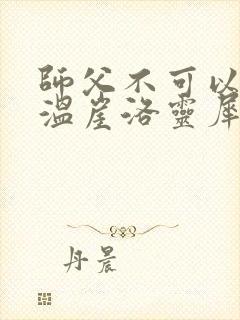 師父不可以
溫崖洛靈犀
丹晨